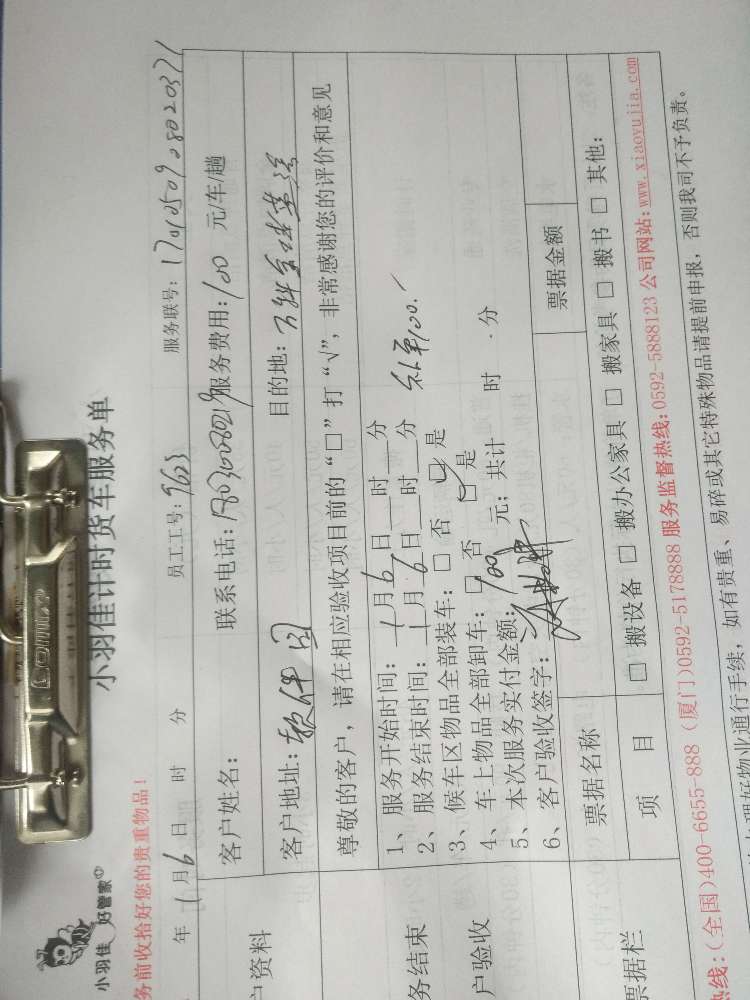 小羽佳 好管家
务前收拾好您的贵重物品！
小羽佳计时货车服务单
年 1月6日 时 分 员工工号：9623 服务联号：
户资料
客户姓名： 联系电话： 服务费用：100 元/车/趟
客户地址：软件园 目的地：
尊敬的客户，请在相应验收项目前的“□”打“√”，非常感谢您的评价和意见
务结束
户验收
1、服务开始时间：1月6日 时 分
2、服务结束时间：1月6日 时 分
3、候车区物品全部装车：□ 否 ☑ 是
4、车上物品全部卸车：□ 否 ☑ 是
5、本次服务实付金额：100 元；共计 时 分
6、客户验收签字：
票据栏
票据名称 票据金额
项 目 □ 搬设备 □ 搬办公家具 □ 搬家具 □ 搬书 □ 其他：
热线：(全国)400-6655-888 (厦门)0592-5178888 服务监督热线：0592-5888123 公司网站：www.xiaoyujia.com
办理好物业通行手续，如有贵重、易碎或其它特殊物品请提前申报，否则我司不予负责。